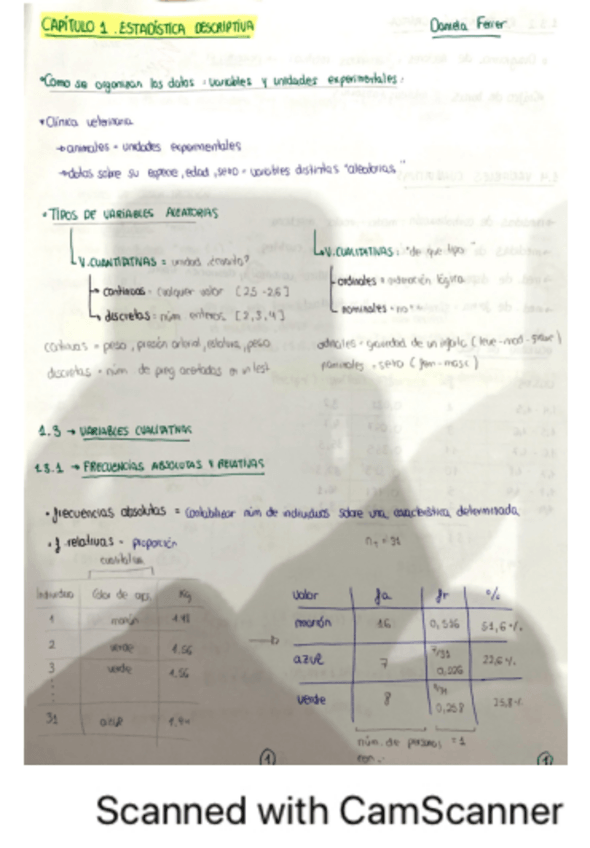 CAPÍTULO 1. ESTADÍSTICA DESCRIPTIVA
Daniela Ferrer
Como se organizan los datos: variables y unidades experimentales:
Clínica veterinaria
→ animales = unidades experimentales
→ datos sobre su especie, edad, sexo = variables distintas "aleatorias"
• TIPOS DE VARIABLES ALEATORIAS
V. CUANTITATIVAS = unidad ¿cuánto?
→ continuas = cualquier valor [2.5 - 2.6]
→ discretas = núm enteros [2,3,4]
continuas = peso, presión arterial, estatura, peso
discretas = núm de preg acertadas en un test
V. CUALITATIVAS: "de que tipo"
ordinales = ordenación lógica
nominales = no
ordinales = gravedad de un infarto (leve-mod-grave)
nominales = sexo (fem-masc)
1.3 → VARIABLES CUALITATIVAS
1.3.1 → FRECUENCIAS ABSOLUTAS Y RELATIVAS
• frecuencias absolutas = contabilizar núm de individuos sobre una característica determinada
• f. relativas = proporción
n = 31
cualitativa
Individuo Color de ojos Kg
1 marrón
2 verde 1.56
3 verde 1.56
31 azul
→
Valor fa fr %
marrón 16 0,516 51,6%
azul 7 7/31 0,226 22,6%
verde 8 8/31 0,258 25,8%
núm. de personas = 1
con...
1
1
Scanned with CamScanner